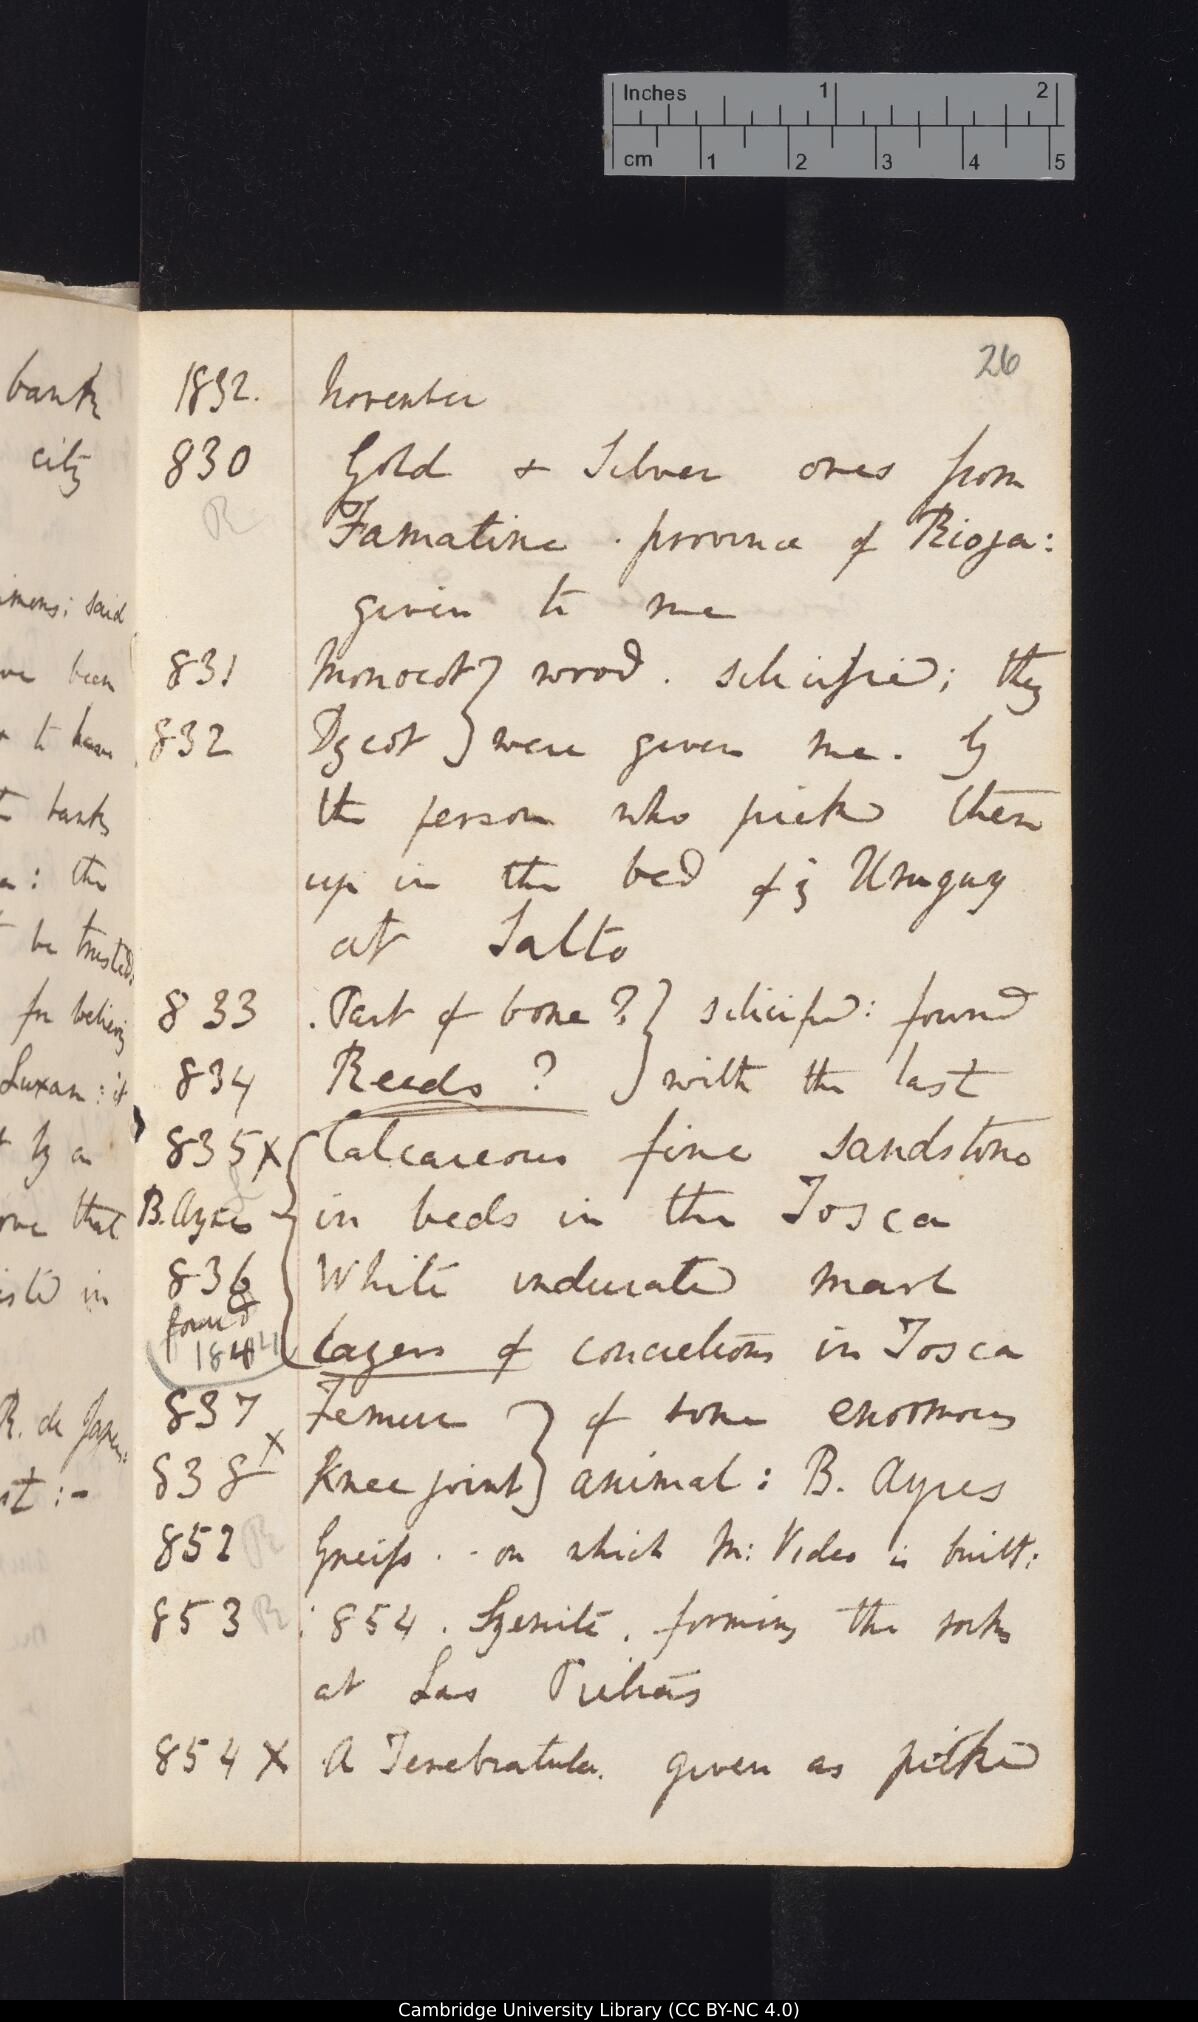 Inches 1 2
cm 1 2 3 4 5
26
bank
city
said
been
to have
banks
: the
be trusted
for believing
Luxan: it
by a
that
in
R. de
1832. November
830 Gold & Silver ores from
R Famatine . province of Rioja:
given to me
831 Monocot } wood . silicified; they
832 Dycot } were given me . by
the person who picked them
up in the bed of ye Uruguay
at Salto
833 . Part of bone? } silicified: found
834 Reeds ? } with the last
835 X Calcareous fine sandstone
B. Ayres in beds in the Tosca
836 White indurated Marl
found
1844 layers of concretions in Tosca
837 Femur } of some enormous
838 X Knee joint } animal : B. Ayres
852 R Gneiss . - on which M: Video is built:
853 R : 854 . Syenite . forming the rocks
at Las Pietras
854 X A Terebratula. given as picked
Cambridge University Library (CC BY-NC 4.0)